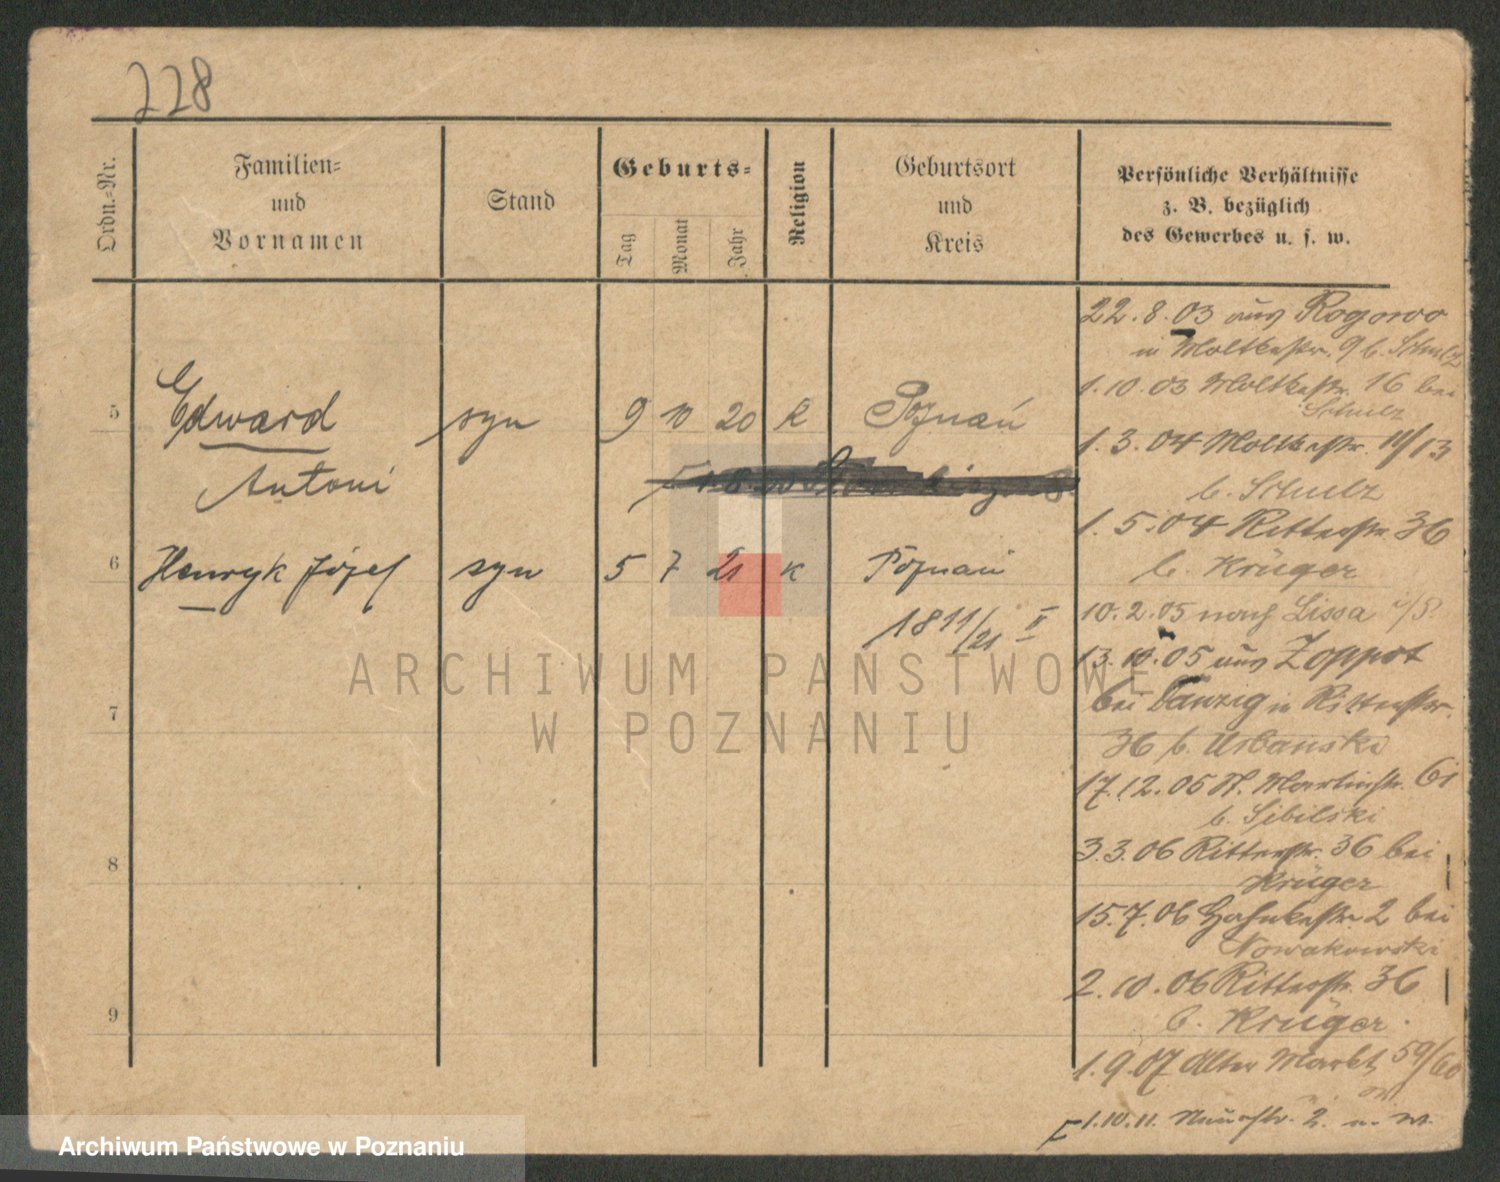 228
Ordn.-Nr.
Familien-
und
Vornamen
Stand
Geburts-
Tag
Monat
Jahr
Religion
Geburtsort
und
Kreis
Persönliche Verhältnisse
z. B. bezüglich
des Gewerbes u. s. w.
5
Edward
Antoni
syn
9 10 20 k
Poznań
6
Henryk Józef
syn
5 7 21 k
Poznań
1811/21 II
7
8
9
22.8.03 aus Rogowo
in Moltkestr. 9 b. Schulz
1.10.03 Moltkestr. 16 bei
Schulz
1.3.04 Moltkestr. 11/13
b. Schulz
1.5.04 Ritterstr. 36
b. Krüger
10.2.05 nach Lissa i/P.
13.10.05 aus Zoppot
bei Danzig in Ritterstr.
36 b. Urbanski
17.12.05 St. Martinstr. 61
b. Sibilski
3.3.06 Ritterstr. 36 bei
Krüger
15.7.06 Hohnkestr. 2 bei
Nowakowski
2.10.06 Ritterstr. 36
b. Krüger
1.9.07 Alter Markt 59/60
1.10.11. 2.
ARCHIWUM PAŃSTWOWE
W POZNANIU
Archiwum Państwowe w Poznaniu